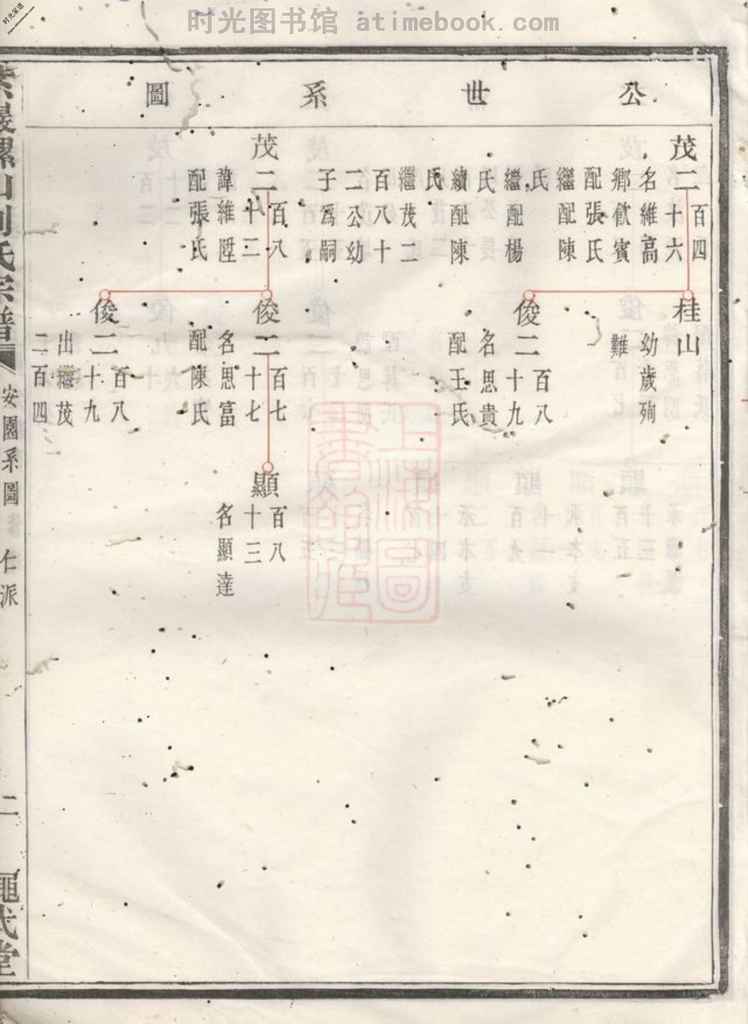 时光图书馆 atimebook.com
公世系圖
茂二百四
十六
名維高
鄉飲賓
配張氏
繼配陳
氏
繼配楊
氏
續配陳
氏
繼茂二
百八十
二公幼
子爲嗣
桂山
幼歲殉
難
俊二百八
十九
名思貴
配王氏
茂二百八
十二
諱維陞
配張氏
俊二百七
十七
名思富
配陳氏
顯百八
十三
名顯達
俊二百八
十九
出繼茂
二百四
山劉氏宗譜
安園系圖
仁派
二
繩武堂